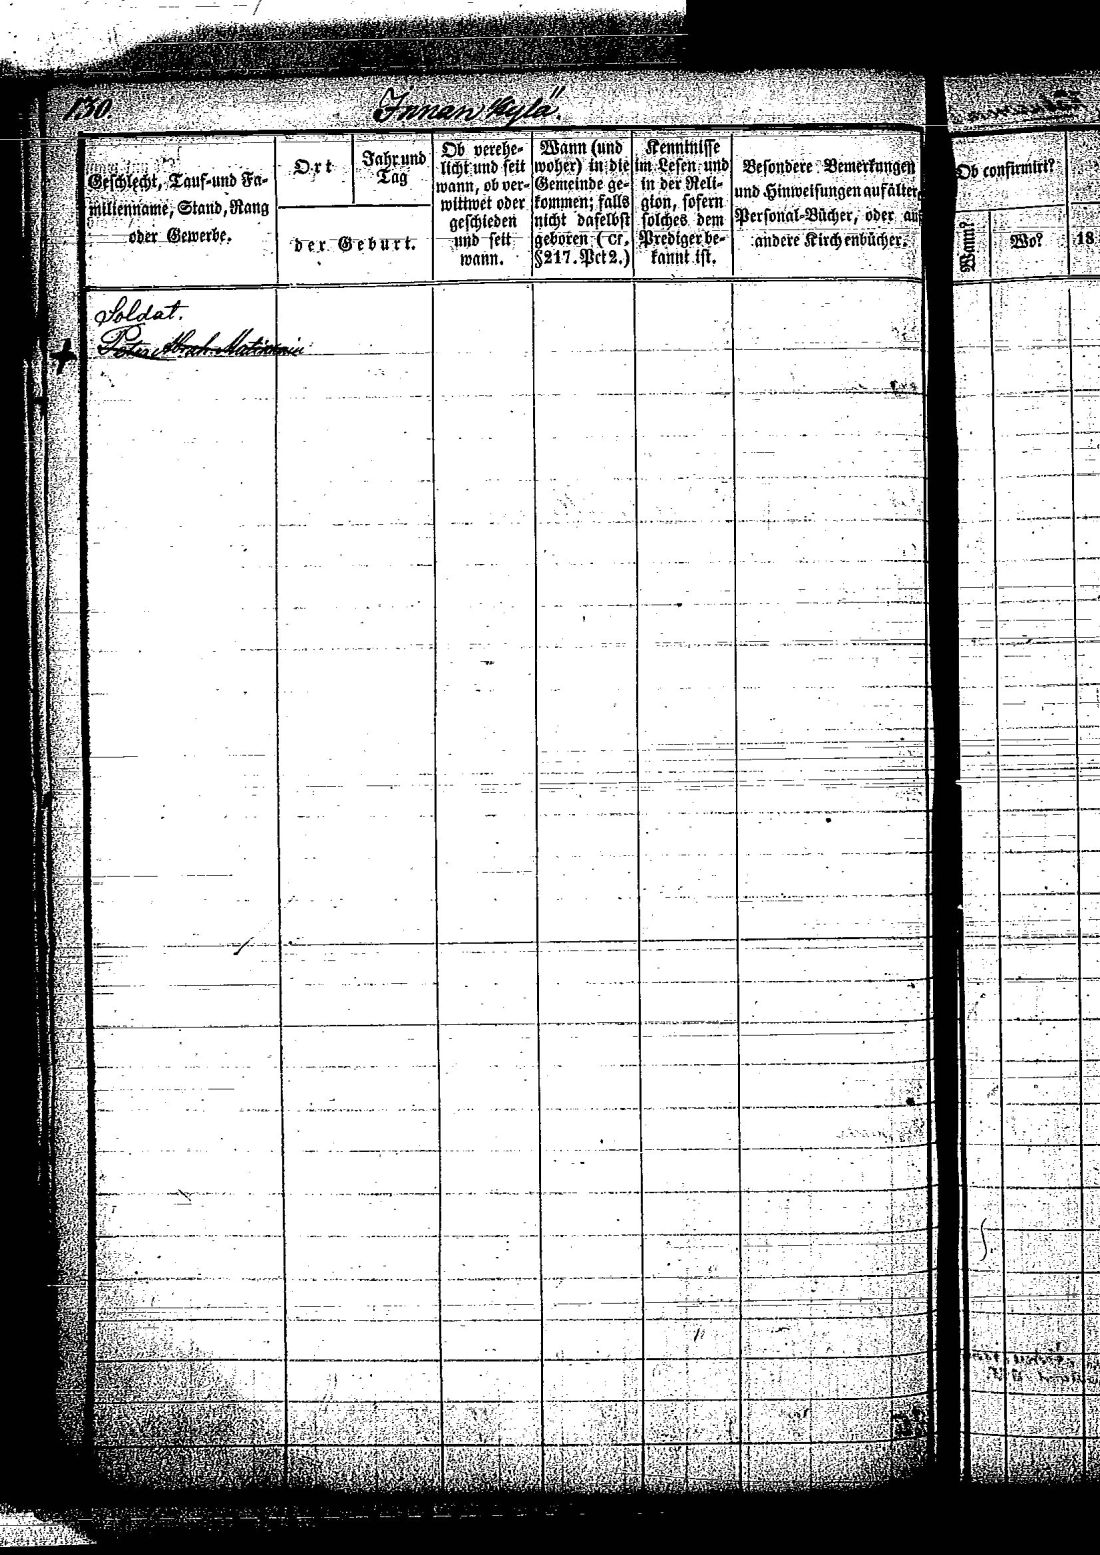 130.
Innan Kylä.
Geschlecht, Tauf- und Fa-
milienname, Stand, Rang
oder Gewerbe.
Ort
Jahr und
Tag
der Geburt.
Ob verehe-
licht und seit
wann, ob ver-
wittwet oder
geschieden
und seit
wann.
Wann (und
woher) in die
Gemeinde ge-
kommen; falls
nicht daselbst
geboren (cr.
§217. Pct 2.)
Kenntnisse
im Lesen und
in der Reli-
gion, sofern
solches dem
Prediger be-
kannt ist.
Besondere Bemerkungen
und Hinweisungen auf älter
Personal-Bücher, oder au
andere Kirchenbücher.
Ob confirmirt?
Wann?
Wo?
18
Soldat.
Peter Abrah. Matinönin